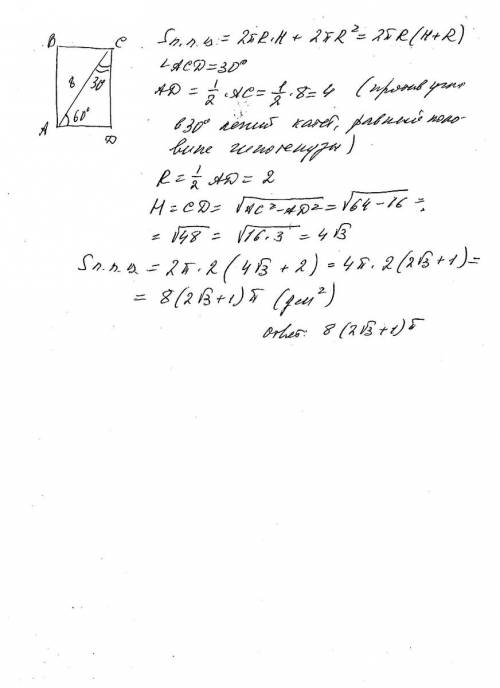 B C
8 30°
A 60° D
Sп.п.ц = 2πR·H + 2πR² = 2πR(H+R)
∠ACD=30°
AD = 1/2 · AC = 1/2 · 8 = 4 (против угла
в 30° лежит катет, равный поло-
вине гипотенузы)
R = 1/2 AD = 2
H = CD = √(AC²-AD²) = √(64-16) =
= √48 = √(16·3) = 4√3
Sп.п.ц. = 2π·2(4√3+2) = 4π·2(2√3+1) =
= 8(2√3+1)π (дм²)
ответ: 8(2√3+1)π